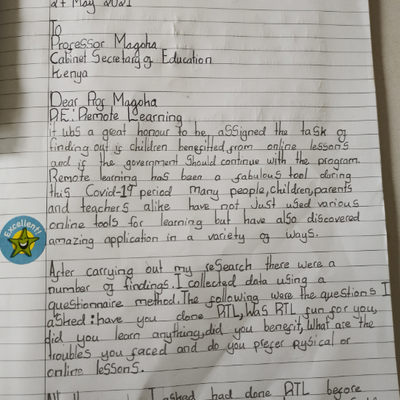 27 May 2021
To
Professor Magoha
Cabinet Secretary of Education
Kenya
Dear Prof Magoha
RE: Remote Learning
it was a great honour to be assigned the task of
finding out if children benefitted from online lessons
and if the government should continue with the program.
Remote learning has been a fabulous tool during
this Covid-19 period many people, children, parents
and teachers alike have not just used various
online tools for learning but have also discovered
amazing application in a variety of ways.
Excellent!
After carrying out my research there were a
number of findings. I collected data using a
questionnaire method. The following were the questions I
asked: have you done RTL, was RTL fun for you,
did you learn anything, did you benefit, What are the
troubles you faced and do you prefer pysical or
online lessons.
I asked had done RTL before